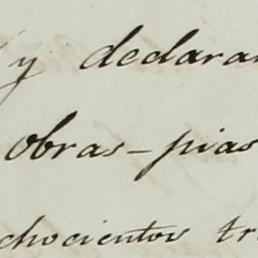 y declara
obras-pias
chocientos tr